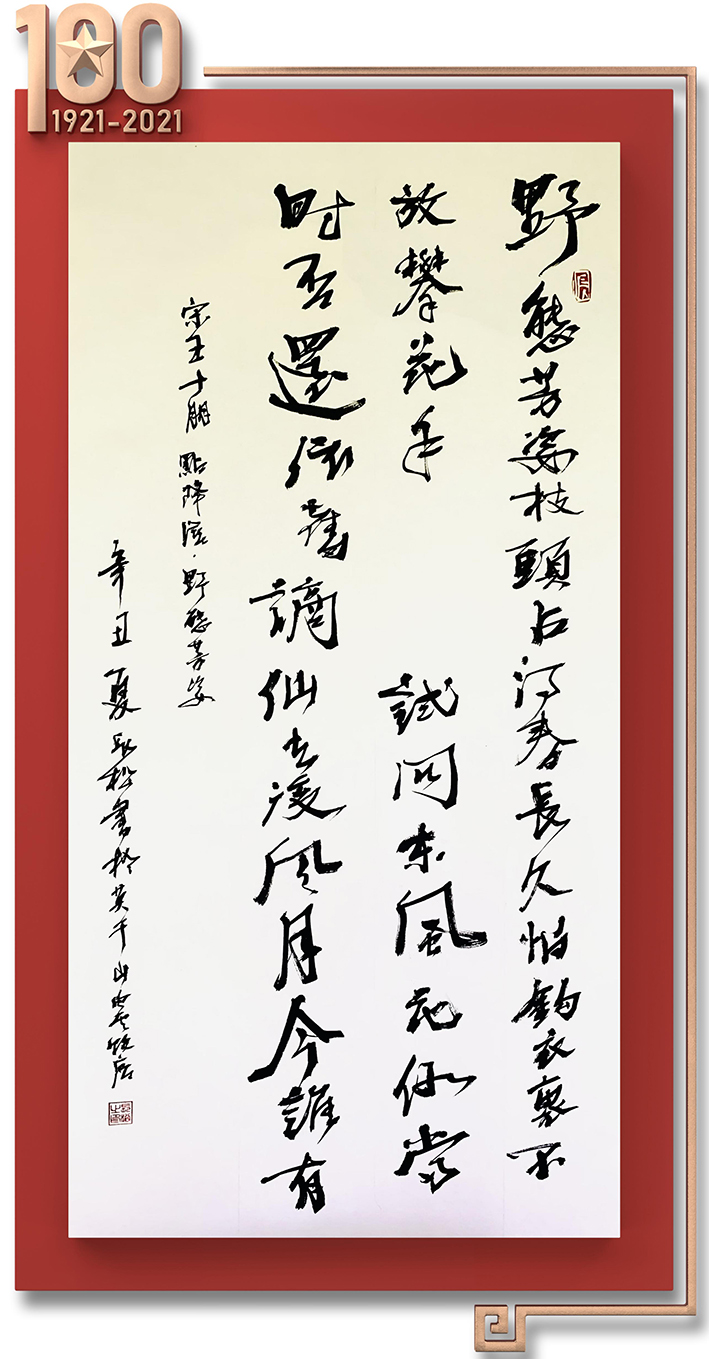 100
1921-2021
野態芳姿枝頭占得春長久怕鈎衣褎不
放攀花手 試問東風花似當
时否還依舊謫仙去後風月今誰有
宋王十朋 點降 · 野態芳姿
辛丑夏 松書於莫干山白雲飯店